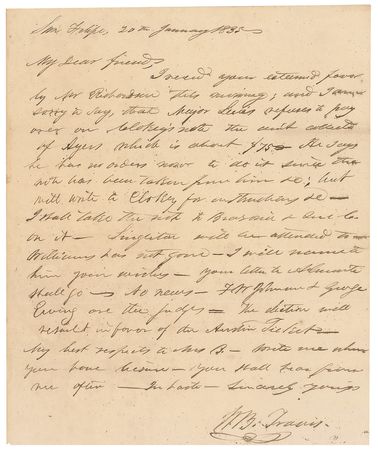 San Felipe, 20th January 1835
My Dear friend,
I recd your esteemed favor
by Mr Richardson this morning; and I am
sorry to say, that Major Lewis refuses to pay
over on Clokey's note the amt collected
of Ayers which is about $75 - He says
he has no orders now to do it since the
note has been taken from him &c; but
will write to Clokey for instructions &c -
I shall take the note to Brazoria & sue
on it - Singleton will be attended to -
Williams has not gone - I will name to
him your wishes - your letter to Almonte
shall go - No news - F W Johnson & George
Ewing are the judges - the election will
result in favor of the Austin Ticket -
My best respects to Mrs B. - Write me when
you have leisure - you shall hear from
me often - In haste - Sincerely yours
W. B. Travis